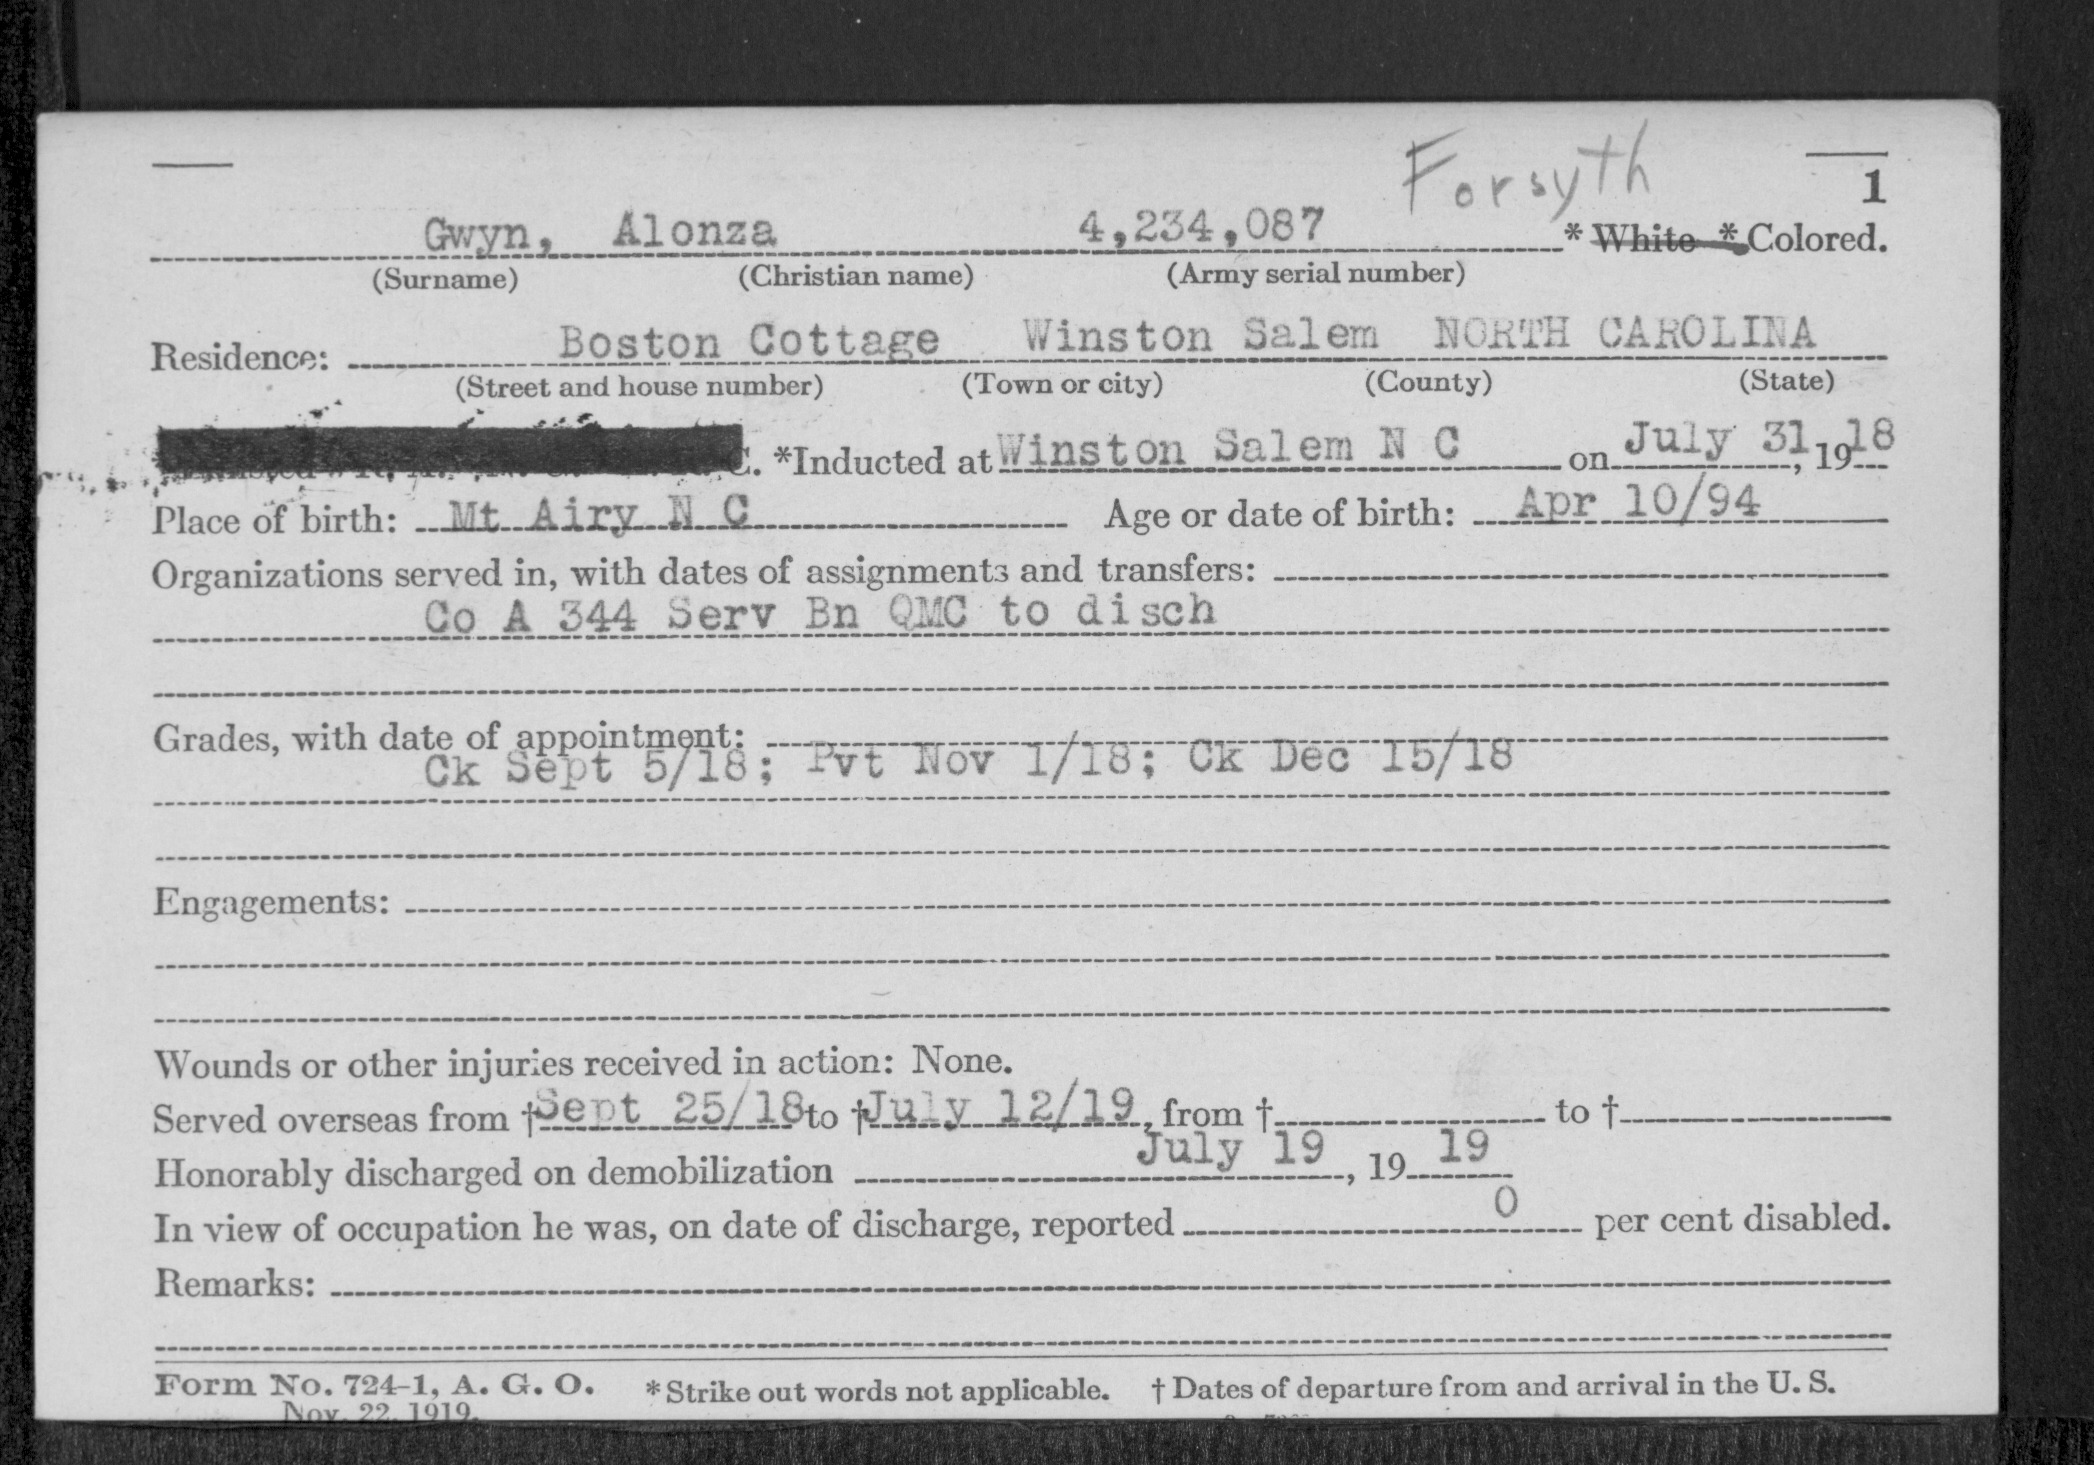 Forsyth
1
Gwyn, Alonza 4,234,087 * White * Colored.
(Surname) (Christian name) (Army serial number)
Residence: Boston Cottage Winston Salem NORTH CAROLINA
(Street and house number) (Town or city) (County) (State)
C. *Inducted at Winston Salem N C on July 31, 1918
Place of birth: Mt Airy N C Age or date of birth: Apr 10/94
Organizations served in, with dates of assignments and transfers:
Co A 344 Serv Bn QMC to disch
Grades, with date of appointment:
Ck Sept 5/18; Pvt Nov 1/18; Ck Dec 15/18
Engagements:
Wounds or other injuries received in action: None.
Served overseas from † Sept 25/18 to † July 12/19, from † to †
Honorably discharged on demobilization July 19, 19 19
In view of occupation he was, on date of discharge, reported 0 per cent disabled.
Remarks:
Form No. 724-1, A. G. O. * Strike out words not applicable. † Dates of departure from and arrival in the U. S.
Nov. 22, 1919.